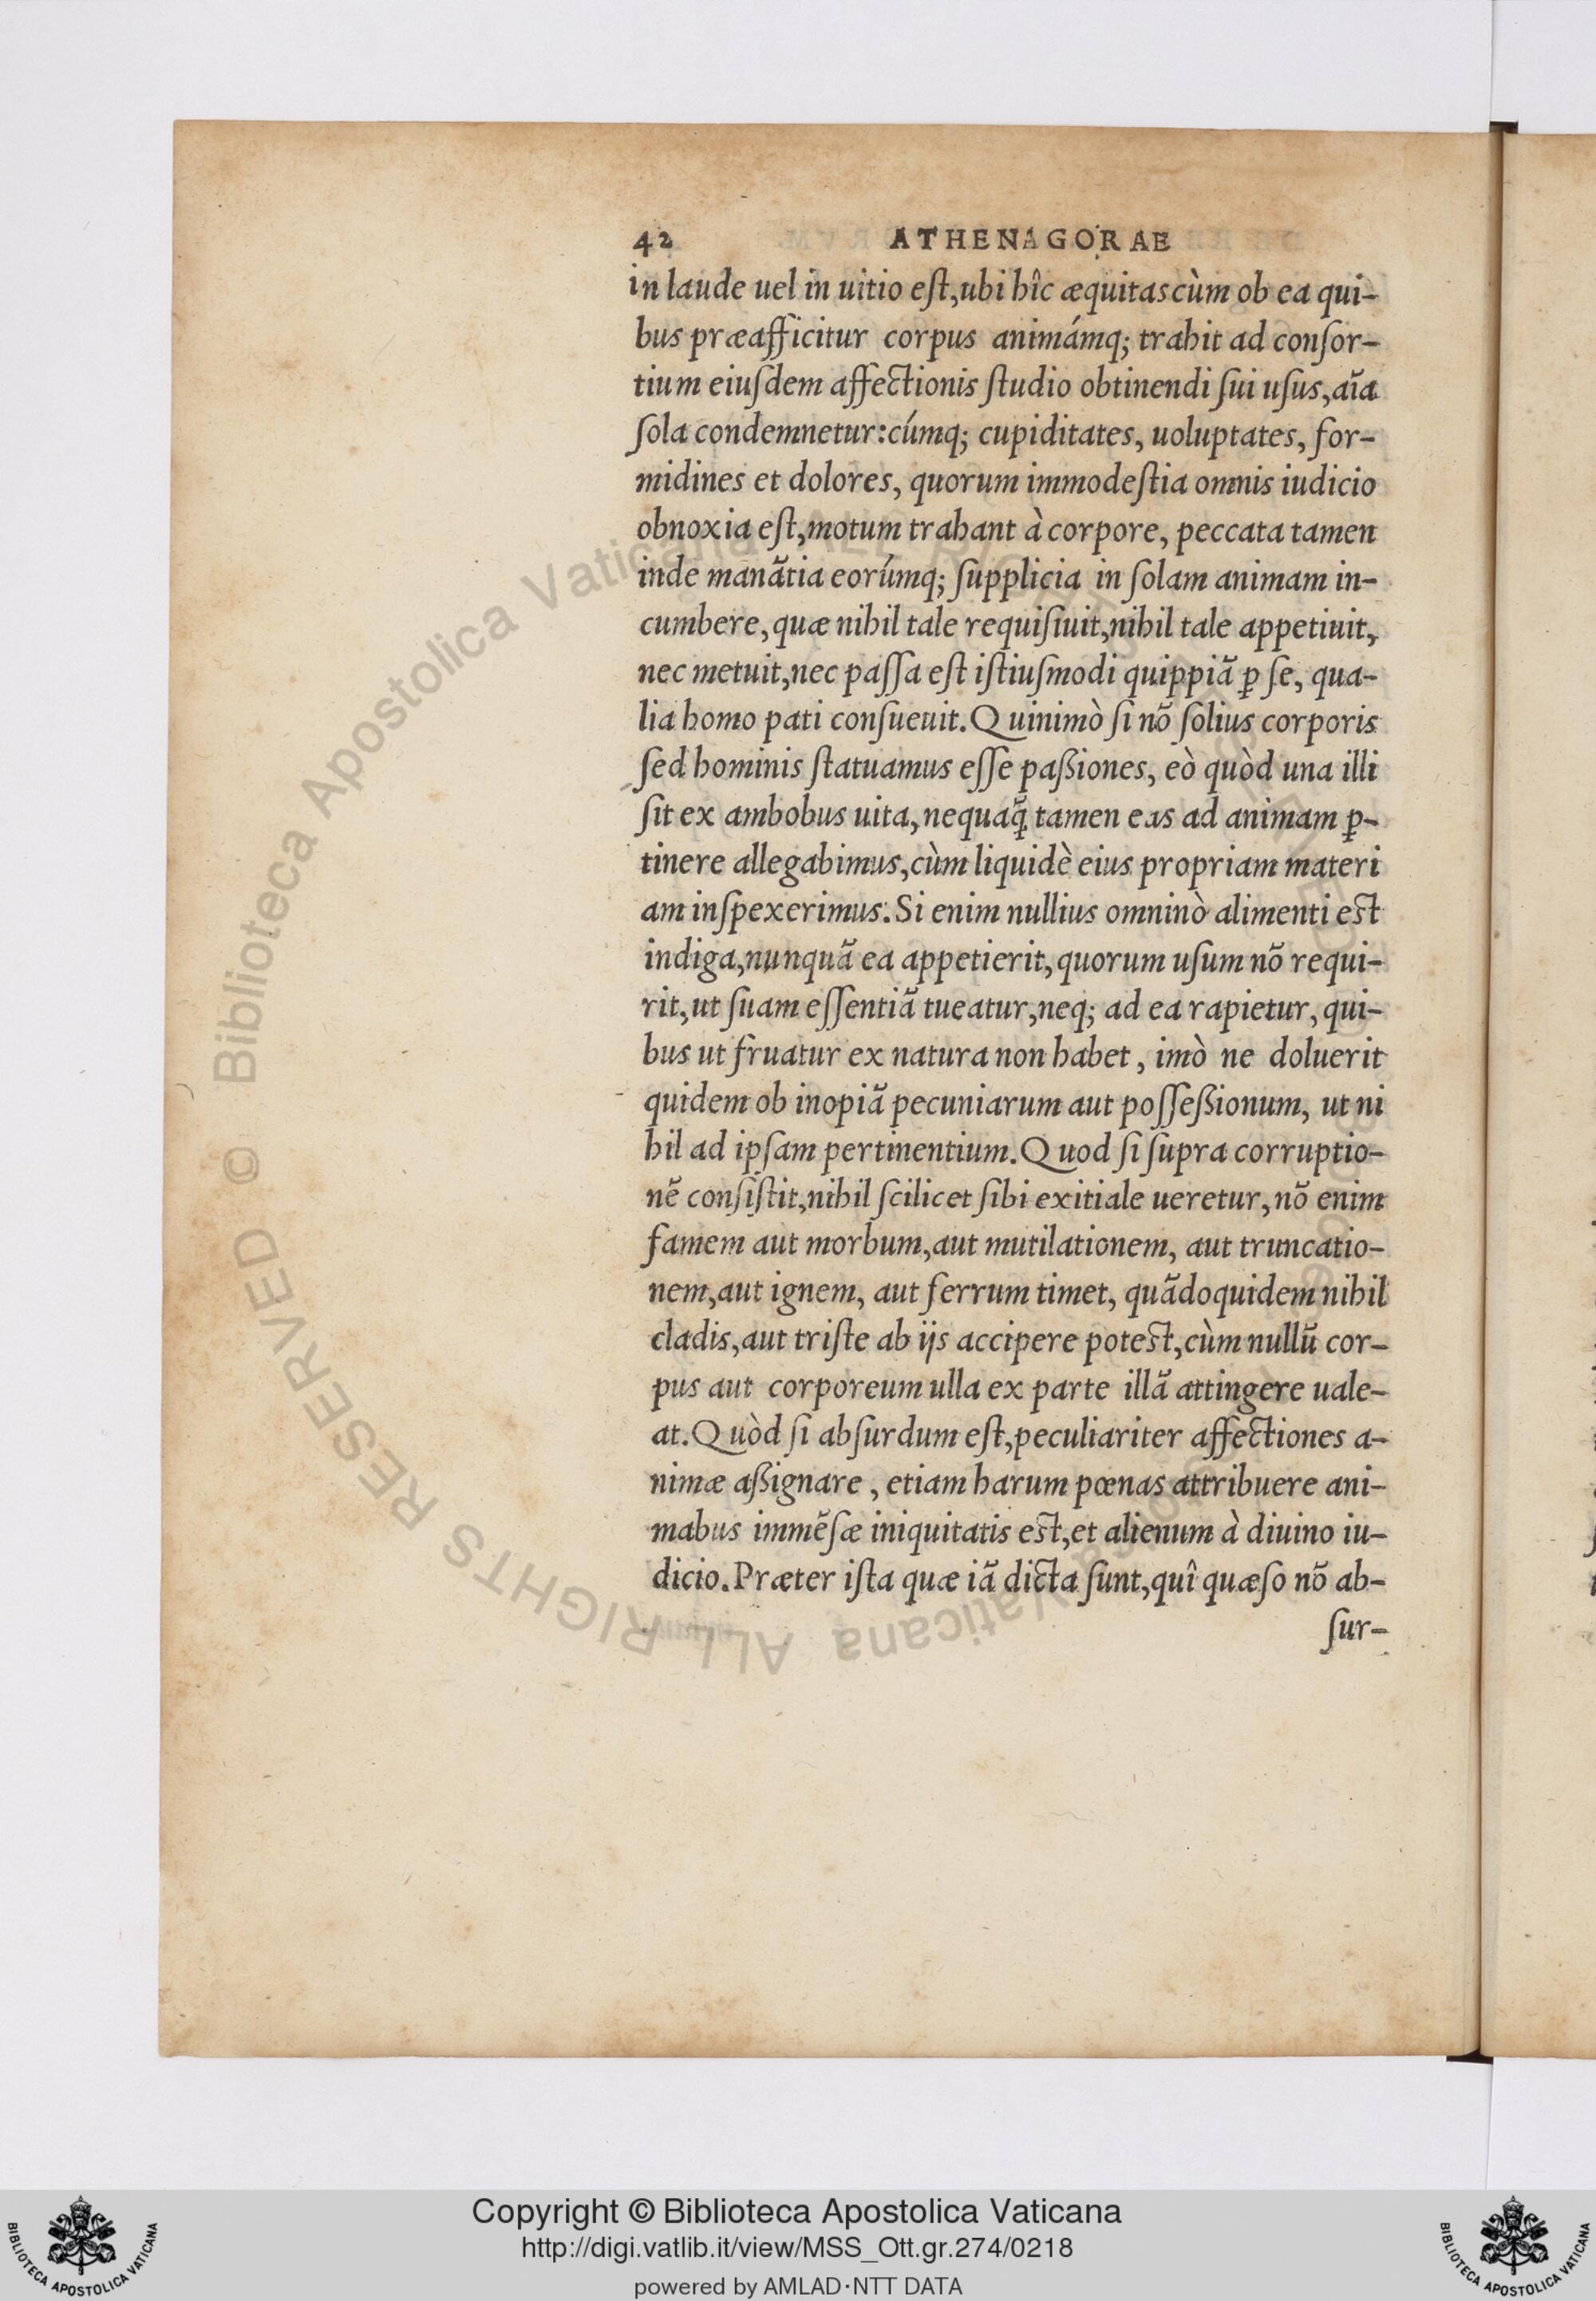 42 ATHENAGORAE
in laude uel in uitio eſt,ubi hîc æquitas cùm ob ea qui-
bus præafficitur corpus animámq; trahit ad conſor-
tium eiuſdem affectionis ſtudio obtinendi ſui uſus,aĩa
ſola condemnetur:cúmq; cupiditates, uoluptates, for-
midines et dolores, quorum immodeſtia omnis iudicio
obnoxia eſt,motum trahant à corpore, peccata tamen
inde manãtia eorúmq; ſupplicia in ſolam animam in-
cumbere,quæ nihil tale requiſiuit,nihil tale appetiuit,
nec metuit,nec paſſa eſt iſtiuſmodi quippiã ꝑ ſe, qua-
lia homo pati conſueuit.Quinimò ſi nõ ſolius corporis
ſed hominis ſtatuamus eſſe paßiones, eò quòd una illi
ſit ex ambobus uita,nequaq̃ tamen eas ad animam ꝑ-
tinere allegabimus,cùm liquidè eius propriam materi
am inſpexerimus.Si enim nullius omninò alimenti est
indiga,nunquã ea appetierit,quorum uſum nõ requi-
rit,ut ſuam eſſentiã tueatur,neq; ad ea rapietur, qui-
bus ut fruatur ex natura non habet, imò ne doluerit
quidem ob inopiã pecuniarum aut poſſeßionum, ut ni
hil ad ipſam pertinentium.Quod ſi ſupra corruptio-
nẽ conſiſtit,nihil ſcilicet ſibi exitiale ueretur,nõ enim
famem aut morbum,aut mutilationem, aut truncatio-
nem,aut ignem, aut ferrum timet, quãdoquidem nihil
cladis,aut triſte ab ijs accipere potest,cùm nullũ cor-
pus aut corporeum ulla ex parte illã attingere uale-
at.Quòd ſi abſurdum eſt,peculiariter affectiones a-
nimæ aßignare, etiam harum pœnas attribuere ani-
mabus immẽſæ iniquitatis est,et alienum à diuino iu-
dicio.Præter iſta quæ iã dicta ſunt,quî quæſo nõ ab-
ſur-
Biblioteca Apostolica Vaticana ALL RIGHTS RESERVED ©
Copyright © Biblioteca Apostolica Vaticana
http://digi.vatlib.it/view/MSS_Ott.gr.274/0218
powered by AMLAD·NTT DATA
BIBLIOTECA APOSTOLICA VATICANA
BIBLIOTECA APOSTOLICA VATICANA